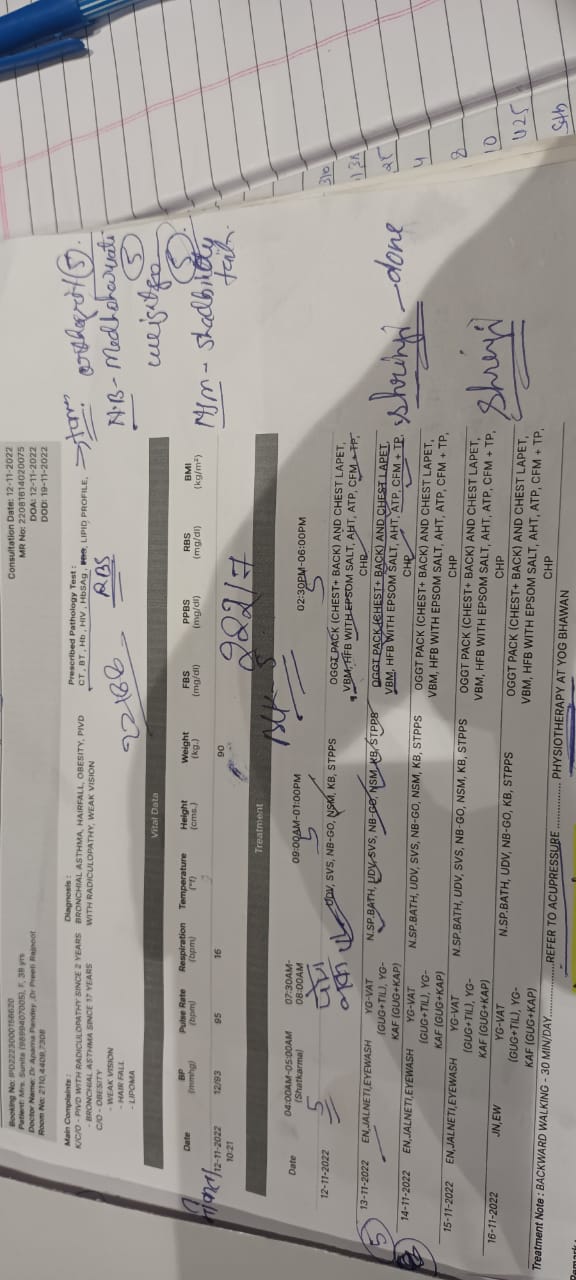 Booking No: IPD2223000156620
Patient: Mrs. Sunita (9899407005), F, 39 yrs
Doctor Name: Dr Aparna Pandey ,Dr Preeti Rajpoot
Room No: 2110,4409,7308
Consultation Date: 12-11-2022
MR No: 22081614020075
DOA: 12-11-2022
DOD: 19-11-2022
Main Complaints :
K/C/O - PIVD WITH RADICULOPATHY SINCE 2 YEARS
- BRONCHIAL ASTHMA SINCE 17 YEARS
C/O - OBESITY
WEAK VISION
- HAIR FALL
- LIPOMA
Diagnosis :
BRONCHIAL ASTHMA, HAIRFALL, OBESITY, PIVD
WITH RADICULOPATHY, WEAK VISION
Prescribed Pathology Test :
CT , BT , Hb , HIV , HbSAg , LIPID PROFILE,
RBS
22186
orthogrit (5)
N.B - Medhohar vati
(5)
M/m - Shallaki
(5)
Vital Data
Date BP (mmhg) Pulse Rate (bpm) Respiration (bpm) Temperature (°f) Height (cms.) Weight (kg.) FBS (mg/dl) PPBS (mg/dl) RBS (mg/dl) BMI (kg/m²)
12-11-2022 10:21 12/93 95 16 90
28217
Treatment
Date 04:00AM-05:00AM (Shatkarma) 07:30AM-08:00AM 09:00AM-01:00PM 02:30PM-06:00PM
5 5
12-11-2022 5 UDV, SVS, NB-GO, NSM, KB, STPPS OGGT PACK (CHEST+ BACK) AND CHEST LAPET, VBM, HFB WITH EPSOM SALT, AHT, ATP, CFM + TP, CHP
(5) 13-11-2022 EN,JALNETI,EYEWASH YG-VAT (GUG+TIL), YG-KAF (GUG+KAP) N.SP.BATH, UDV, SVS, NB-GO, NSM, KB, STPPS OGGT PACK (CHEST+ BACK) AND CHEST LAPET, VBM, HFB WITH EPSOM SALT, AHT, ATP, CFM + TP, CHP Shrinji - done
14-11-2022 EN,JALNETI,EYEWASH YG-VAT (GUG+TIL), YG-KAF (GUG+KAP) N.SP.BATH, UDV, SVS, NB-GO, NSM, KB, STPPS OGGT PACK (CHEST+ BACK) AND CHEST LAPET, VBM, HFB WITH EPSOM SALT, AHT, ATP, CFM + TP, CHP
15-11-2022 EN,JALNETI,EYEWASH YG-VAT (GUG+TIL), YG-KAF (GUG+KAP) N.SP.BATH, UDV, SVS, NB-GO, NSM, KB, STPPS OGGT PACK (CHEST+ BACK) AND CHEST LAPET, VBM, HFB WITH EPSOM SALT, AHT, ATP, CFM + TP, CHP
16-11-2022 JN,EW YG-VAT (GUG+TIL), YG-KAF (GUG+KAP) N.SP.BATH, UDV, NB-GO, KB, STPPS OGGT PACK (CHEST+ BACK) AND CHEST LAPET, VBM, HFB WITH EPSOM SALT, AHT, ATP, CFM + TP, CHP
Treatment Note : BACKWARD WALKING - 30 MIN/DAY...............REFER TO ACUPRESSURE ............... PHYSIOTHERAPY AT YOG BHAWAN
25
4
8
10